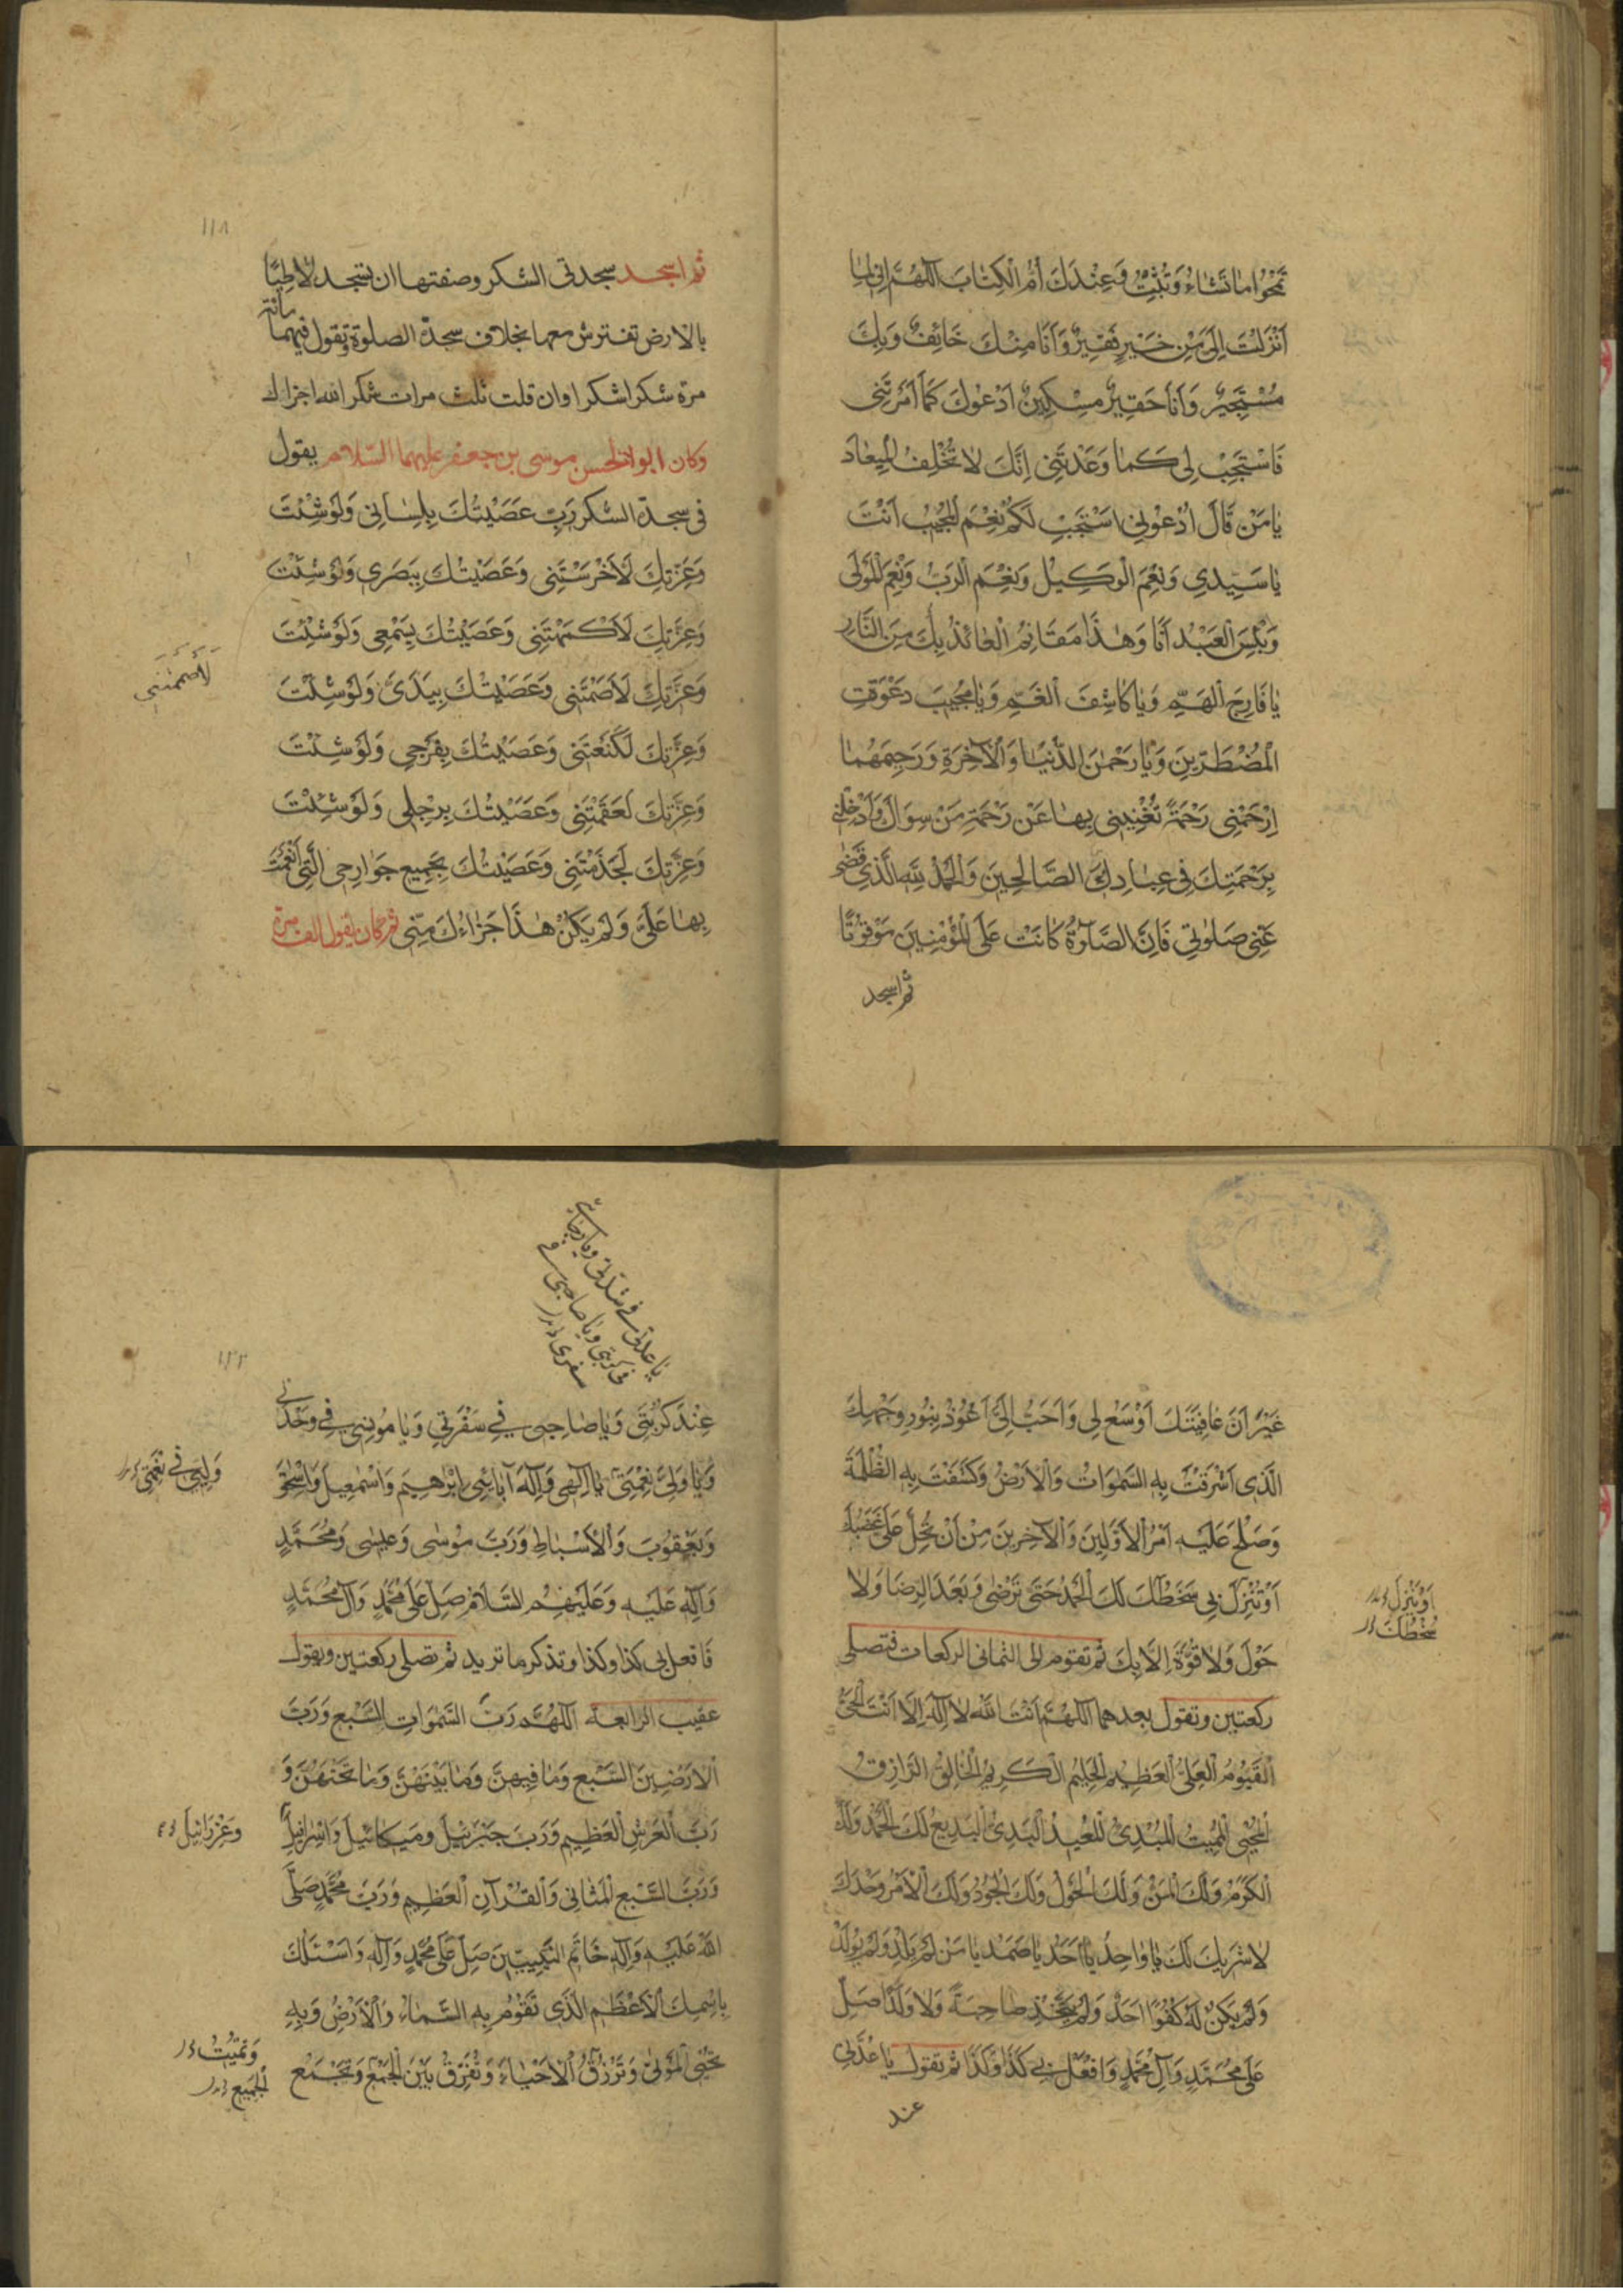 تَمْحُوا مٰا تَشٰاءُ وَتُثْبِتُ وَعِنْدَكَ أُمُّ الْكِتٰابِ اَللّٰهُمَّ اِنّى لِمٰا
اَنْزَلْتَ اِلَىَّ مِنْ خَيْرٍ فَقِيرٌ وَاَنَا مِنْكَ خَائِفٌ وَبِكَ
مُسْتَجِيرٌ وَاَنَا حَقِيرٌ مِسْكِينٌ اَدْعُوكَ كَمٰا اَمَرْتَنى
فَاسْتَجِبْ لِى كَمٰا وَعَدْتَنِى اِنَّكَ لا تُخْلِفُ الْمِيعٰادَ
يٰا مَنْ قَالَ اُدْعُونِى اَسْتَجِبْ لَكُمْ نِعْمَ الْمُجِيبُ اَنْتَ
يٰا سَيِّدِي وَنِعْمَ الْوَكِيلُ وَنِعْمَ الرَّبُّ وَنِعْمَ الْمَوْلَى
وَبِئْسَ الْعَبْدُ اَنَا وَهٰذَا مَقَامُ الْعٰائِذِ بِكَ مِنَ النَّارِ
يٰا فَارِجَ الْهَمِّ وَيٰا كَاشِفَ الْغَمِّ وَيٰا مُجِيبَ دَعْوَةِ
الْمُضْطَرّينَ وَيٰا رَحْمٰنَ الدُّنْيٰا وَالْاٰخِرَةِ وَرَحِيمَهُمٰا
اِرْحَمْنِى رَحْمَةً تُغْنِينِى بِهٰا عَنْ رَحْمَةِ مَنْ سِوَاكَ وَاَدْخِلْنِى
بِرَحْمَتِكَ فِى عِبٰادِكَ الصَّالِحِينَ وَالْحَمْدُ لِلّٰهِ الَّذِي قَضٰى
عَنِّى صَلٰوتِى فَاِنَّ الصَّلٰوةَ كَانَتْ عَلَى الْمُؤْمِنِينَ مَوْقُوتًا
ثم اسجد
١١٨
ثم اسجد سجدتى الشكر وصفتها ان تسجد لاطِيًا
بالارض تفترش معهما بخلاف سجدة الصلوة وتقول فيهما مائة
مرة شكرا شكرا وان قلت ثلث مرات شكرا لله اجزاك
وكان ابو الحسن موسى بن جعفر عليهما السّلام يقول
فى سجدة الشكر رَبِّ عَصَيْتُكَ بِلِسٰانِى وَلَوْ شِئْتَ
وَعِزَّتِكَ لَاَخْرَسْتَنِى وَعَصَيْتُكَ بِبَصَرِى وَلَوْ شِئْتَ
وَعِزَّتِكَ لَاَكْمَهْتَنِى وَعَصَيْتُكَ بِسَمْعِى وَلَوْ شِئْتَ
لَاَصْمَمْتَنِى
وَعِزَّتِكَ لَاَصَمْتَنِى وَعَصَيْتُكَ بِيَدَىَّ وَلَوْ شِئْتَ
وَعِزَّتِكَ لَكَنَعْتَنِى وَعَصَيْتُكَ بِفَرْجِى وَلَوْ شِئْتَ
وَعِزَّتِكَ لَعَقَمْتَنِى وَعَصَيْتُكَ بِرِجْلِى وَلَوْ شِئْتَ
وَعِزَّتِكَ لَجَذَمْتَنِى وَعَصَيْتُكَ بِجَمِيعِ جَوٰارِحِى الَّتِى اَنْعَمْتَ
بِهٰا عَلَىَّ وَلَمْ يَكُنْ هٰذَا جَزٰاءُكَ مِنِّى ثم كان يقول الف مرة
غَيْرَ اَنَّ عٰافِيَتَكَ اَوْسَعُ لِى وَاَحَبُّ اِلَىَّ اَعُوذُ بِنُورِ وَجْهِكَ
الَّذِى اَشْرَقَتْ بِهِ السَّمٰوَاتُ وَالْاَرْضُ وَكَشَفَتْ بِهِ الظُّلْمَةُ
وَصَلُحَ عَلَيْهِ اَمْرُ الْاَوَّلِينَ وَالْاٰخِرِينَ مِنْ اَنْ تُحِلَّ عَلَىَّ غَضَبَكَ
اَوْ تُنْزِلَ بِى سَخَطَكَ لَكَ الْحَمْدُ حَتّى تَرْضٰى وَبَعْدَ الرِّضَا وَلا
اَوْ تُنْزِلَ
سُخْطَكَ
حَوْلَ وَلا قُوَّةَ اِلّا بِكَ ثم تقوم الى الثمانى الركعات فتصلى
ركعتين وتقول بعدهما اَللّٰهُمَّ اَنْتَ اللّٰهُ لا اِلٰهَ اِلّا اَنْتَ الْحَىُّ
الْقَيُّومُ الْعَلِىُّ الْعَظِيمُ الْحَلِيمُ الْكَرِيمُ الْخٰالِقُ الرَّازِقُ
الْمُحْيِى الْمُمِيتُ الْمُبْدِئُ الْمُعِيدُ الْبَدِىُّ الْبَدِيعُ لَكَ الْحَمْدُ وَلَكَ
الْكَرَمُ وَلَكَ الْمَنُّ وَلَكَ الْحَوْلُ وَلَكَ الْجُودُ وَلَكَ الْاَمْرُ وَحْدَكَ
لا شَرِيكَ لَكَ يٰا وٰاحِدُ يٰا اَحَدُ يٰا صَمَدُ يٰا مَنْ لَمْ يَلِدْ وَلَمْ يُولَدْ
وَلَمْ يَكُنْ لَهُ كُفُوًا اَحَدٌ وَلَمْ يَتَّخِذْ صٰاحِبَةً وَلا وَلَدًا صَلِّ
عَلَى مُحَمَّدٍ وَآلِ مُحَمَّدٍ وَافْعَلْ بِى كَذَا وَكَذَا ثم تقول يٰا عُدَّتِى
عند
يا عدتى فى شدتى ويا رجائى
فى كربتى ويا صاحبى فى
سفرى
١٢٢
عِنْدَ كُرْبَتِى وَيٰا صٰاحِبِى فِى سَفْرَتِى وَيٰا مُونِسِى فِى وَحْدَتِى
وَلِيِّى فى نِعْمَتِى
وَيٰا وَلِىَّ نِعْمَتِى يٰا اِلٰهِى وَاِلٰهَ اٰبٰائِى اِبْرٰهِيمَ وَاِسْمٰعِيلَ وَاِسْحٰقَ
وَيَعْقُوبَ وَالْاَسْبٰاطِ وَرَبَّ مُوسٰى وَعِيسٰى وَمُحَمَّدٍ
وَآلِهِ عَلَيْهِ وَعَلَيْهِمُ السَّلَامُ صَلِّ عَلَى مُحَمَّدٍ وَآلِ مُحَمَّدٍ
فَافعل بى كذا وكذا وتذكر ما تريد ثم تصلى ركعتين وتقول
عقيب الرابعة اَللّٰهُمَّ رَبَّ السَّمٰوَاتِ السَّبْعِ وَرَبَّ
الْاَرَضِينَ السَّبْعِ وَمٰا فِيهِنَّ وَمٰا بَيْنَهُنَّ وَمٰا تَحْتَهُنَّ وَ
رَبَّ الْعَرْشِ الْعَظِيمِ وَرَبَّ جَبْرَئِيلَ وَمِيكٰائِيلَ وَاِسْرٰافِيلَ
وَعِزْرَائِيلَ
وَرَبَّ السَّبْعِ الْمَثٰانِى وَالْقُرْآنِ الْعَظِيمِ وَرَبَّ مُحَمَّدٍ صَلَّى
اللّٰهُ عَلَيْهِ وَآلِهِ خٰاتَمِ النَّبِيّينَ صَلِّ عَلَى مُحَمَّدٍ وَآلِهِ وَاَسْئَلُكَ
بِاسْمِكَ الْاَعْظَمِ الَّذِى تَقُومُ بِهِ السَّمٰاءُ وَالْاَرْضُ وَبِهِ
وَتُمِيتُ
تُحْيِى الْمَوْتٰى وَتَرْزُقُ الْاَحْيٰاءَ وَتُفَرِّقُ بَيْنَ الْجَمْعِ وَتَجْمَعُ
الْجَمِيعِ